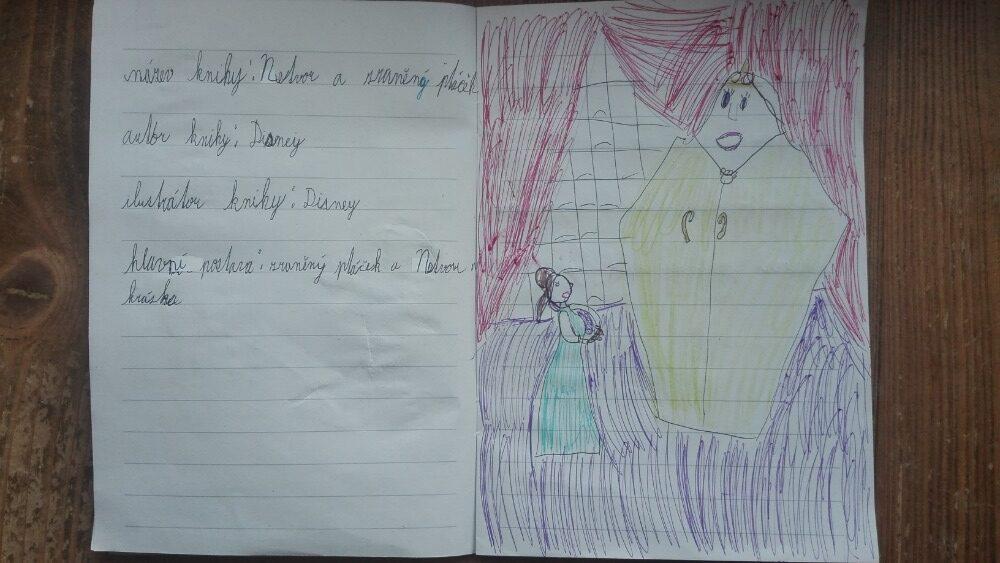 název knihy: Netvor a zraněný ptáček
autor knihy: Disney
ilustrátor knihy: Disney
hlavní postava: zraněný ptáček a Netvor
kráska